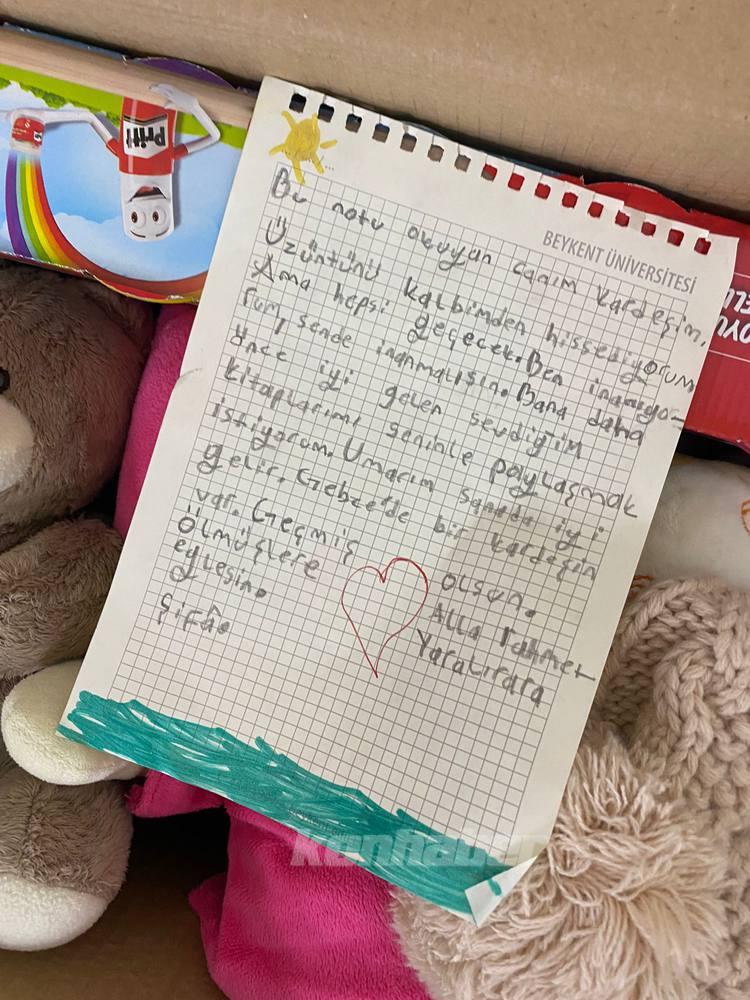 Pritt
BEYKENT ÜNİVERSİTESİ
Bu notu okuyan canım kardeşim,
Üzüntünü kalbimden hissediyorum,
Ama hepsi geçecek. Ben inanıyo-
rum, sende inanmalısın. Bana daha
önce iyi gelen sevdiğim
kitaplarımı seninle paylaşmak
istiyorum. Umarım sanada iyi
gelir. Gebze'de bir kardeşin
var. Geçmiş olsun.
Ölmüşlere Alla rahmet
eylesin. Yaralırara
Şifâ.
kenhaber